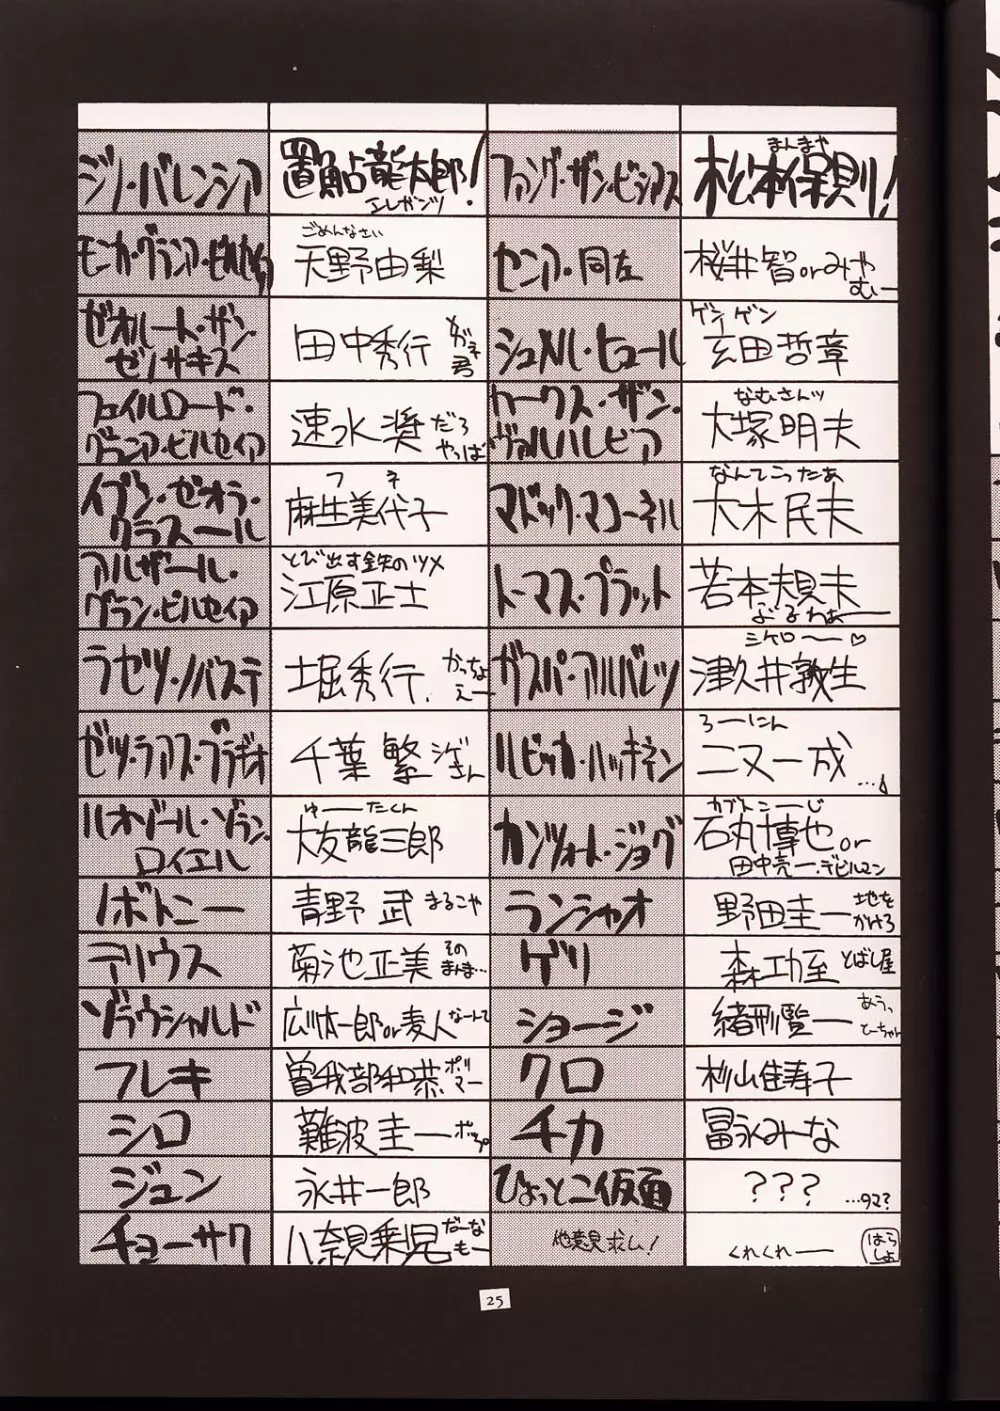 ジノ・バレンシア
置鮎龍太郎!
エレガンツ
ファング・ザン・ビシアス
まんまや
松本保則!
モニカ・グランア・ビルセイア
ごめんなさい
天野由梨
センア・同左
桜井智orみや
むー
ゼオルート・ザン・
ゼノサキス
田中秀行
メガネ
君
シュメル・ヒュール
ゲンゲン
玄田哲章
フェイルロード・
グランア・ビルセイア
速水奨だろ
やっぱ
カークス・ザン・
ヴァルハレビア
なむさんッ
大塚明夫
イブン・ゼオラ・
クラスール
フネ
麻生美代子
マドック・マコーネル
なんてこったぁ
大木民夫
アルザール・
グラン・ビルセイア
とび出す鉄のツメ
江原正士
トーマス・プラット
若本規夫
ぶるわぁー
ラセツ・ノバステ
堀秀行.
かーちょ
えー
ガスパ・アルバレツ
シゲロ〜♡
津久井教生
ゼツ・ラアス・ブラギオ
千葉繁
シゲさん
ルビッカ・ハッキネン
ろーにん
二又一成
ハオゾール・ゾラン・
ロイエル
ゆーたくん
大友龍三郎
カンツォート・ジョグ
カブトこーじ
石丸博也or
田中亮一・デビルマン
ノボトニー
青野武 まるこや
ランシャオ
野田圭一
地を
かけろ
テリウス
菊池正美
その
まんま…
ゲリ
森功至 とばし屋
ゾラウシャルド
広瀬一郎or麦人 なーんて
ショージ
緒形賢一
あうっ
とーちゃん
フレキ
曽我部和恭
ボマー
クロ
杉山佳寿子
シロ
難波圭一 ポップ
チカ
冨永みーな
ジュン
永井一郎
ひょっとこ仮面
???
…タマ?
チョーサク
八奈見乗児
だーな
もー
他意見求ム!
くれくれー
はら
しょ
25